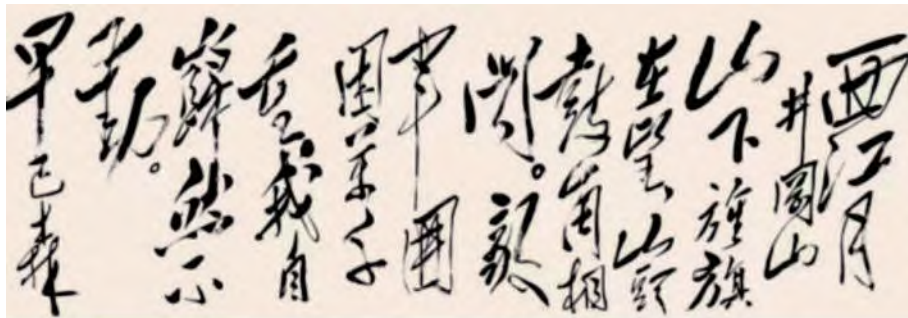 西江月
井岡山
山下旌旗
在望，山頭
鼓角相
聞。敵
軍圍
困萬千
重，我自
巋然不
動。
早已森